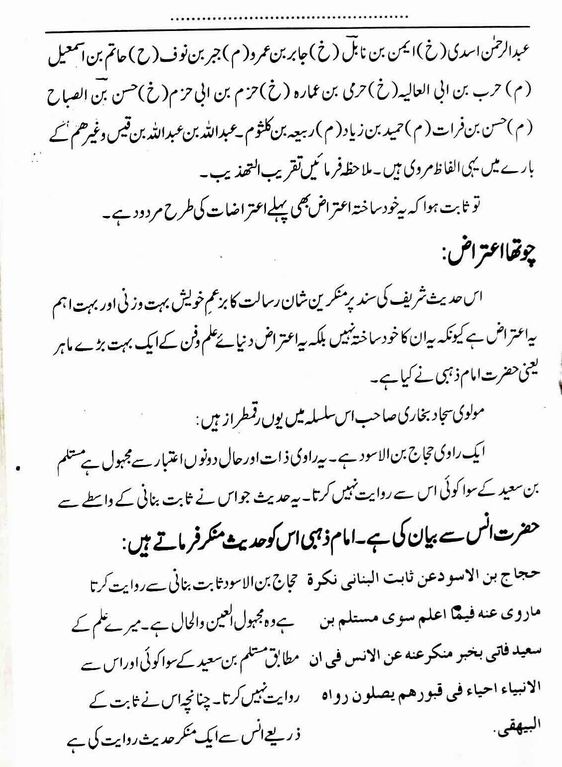 عبدالرحمٰن اسدی (خ) ایمن بن نابل (خ) جابر بن عمرو (م) جبر بن نوف (ح) حاتم بن اسمٰعیل
(م) حرب بن ابی العالیہ (خ) حرمی بن عمارہ (خ) حزم بن ابی حزم (خ) حسن بن الصباح
(م) حسن بن فرات (م) حمید بن زیاد (م) ربیعہ بن کلثوم۔ عبداللہ بن عبداللہ بن قیس وغیرھم کے
بارے میں یہی الفاظ مروی ہیں۔ ملاحظہ فرمائیں تقریب التھذیب۔
تو ثابت ہوا کہ یہ خود ساختہ اعتراض بھی پہلے اعتراضات کی طرح مردود ہے۔
چوتھا اعتراض:
اس حدیث شریف کی سند پر منکرین شان رسالت کا بزعم خویش بہت وزنی اور بہت اہم
یہ اعتراض ہے کیونکہ یہ ان کا خود ساختہ نہیں بلکہ یہ اعتراض دنیائے علم وفن کے ایک بہت بڑے ماہر
یعنی حضرت امام ذہبی نے کیا ہے۔
مولوی سجاد بخاری صاحب اس سلسلہ میں یوں رقمطراز ہیں:
ایک راوی حجاج بن الاسود ہے۔ یہ راوی ذات اور حال دونوں اعتبار سے مجہول ہے مستلم
بن سعید کے سوا کوئی اس سے روایت نہیں کرتا۔ یہ حدیث جو اس نے ثابت بنانی کے واسطے سے
حضرت انس سے بیان کی ہے۔ امام ذہبی اس کو حدیث منکر فرماتے ہیں:
حجاج بن الاسود عن ثابت البنانی نکرة
ماروی عنه فیما اعلم سوی مستلم بن
سعید فاتی بخبر منکر عنه عن الانس فی ان
الانبیاء احیاء فی قبورھم یصلون رواہ
البیھقی.
حجاج بن الاسود ثابت بنانی سے روایت کرتا
ہے وہ مجہول العین والحال ہے۔ میرے علم کے
مطابق مستلم بن سعید کے سوا کوئی اور اس سے
روایت نہیں کرتا۔ چنانچہ اس نے ثابت کے
ذریعے انس سے ایک منکر حدیث روایت کی ہے